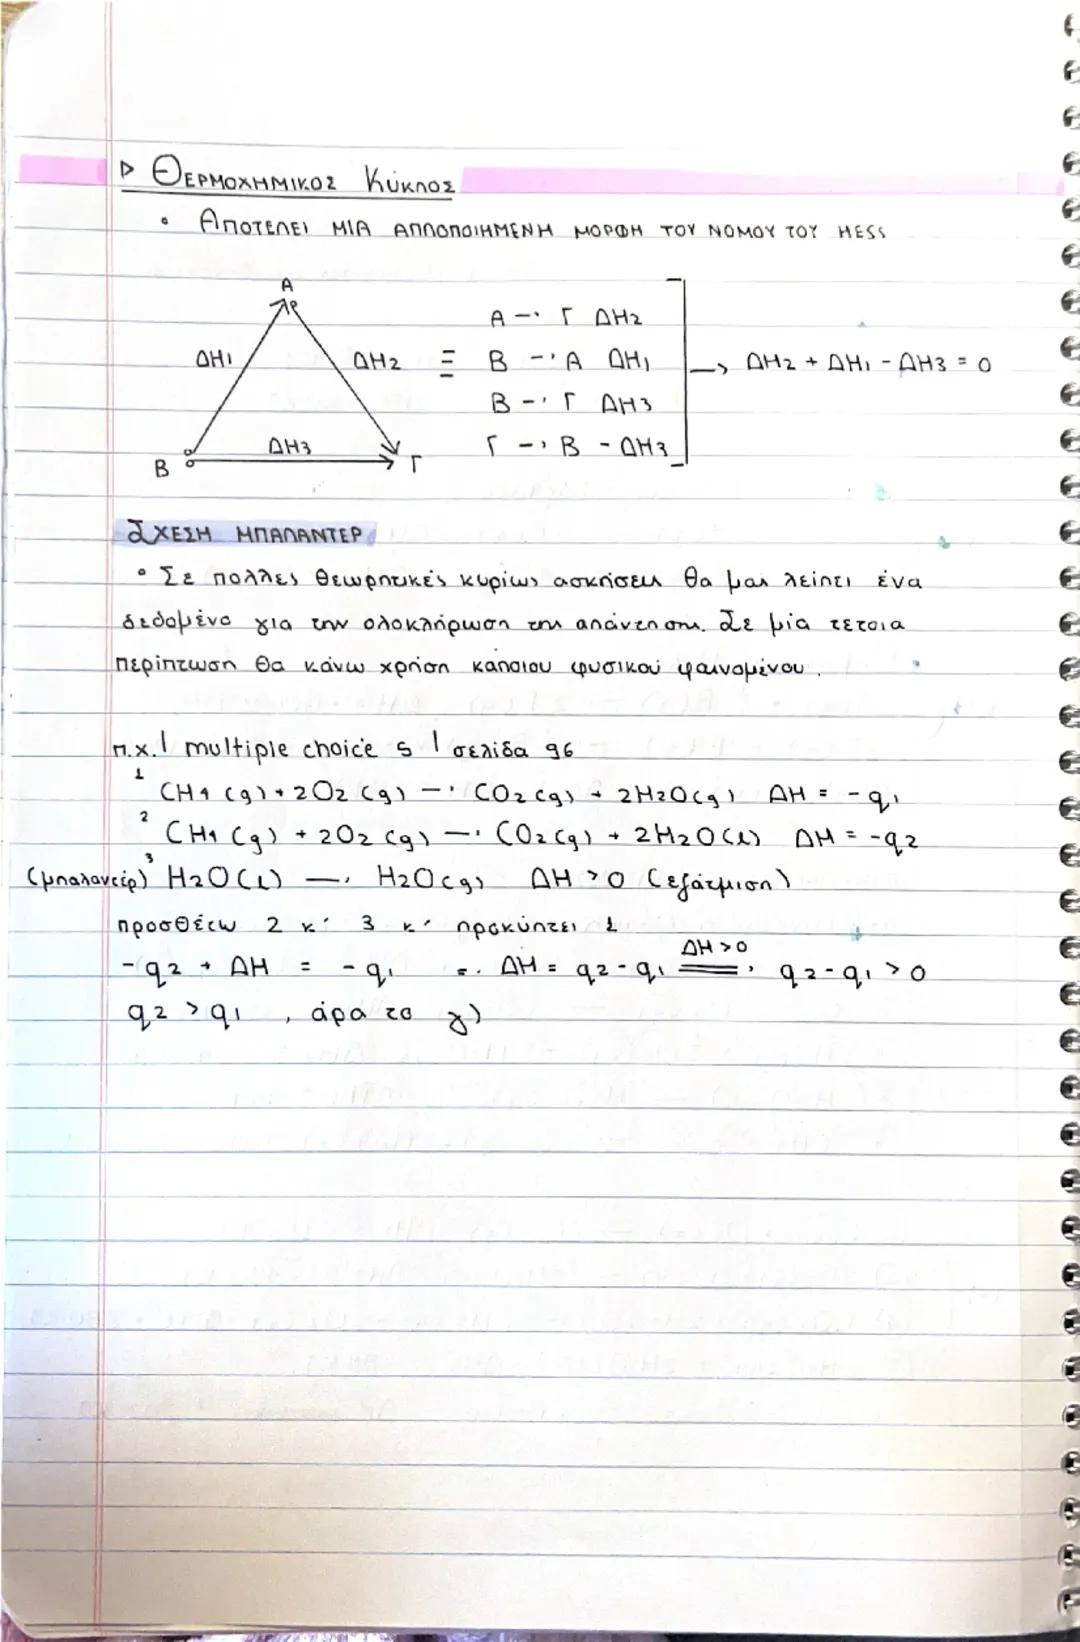 ▷ ΘΕΡΜΟΧΗΜΙΚΟΣ ΚύΚΛΟΣ
• ΑΠΟΤΕΛΕΙ ΜΙΑ ΑΠΛΟΠΟΙΗΜΕΝΗ ΜΟΡΦΗ ΤΟΥ ΝΟΜΟΥ ΤΟΥ HESS
A
A → Γ ΔH2
ΔH1 ΔH2 ≡ B → A ΔH1 → ΔH2 + ΔH1 - ΔH3 = 0
B → Γ ΔH3
ΔH3 Γ → B - ΔH3
B Γ
ΣΧΕΣΗ ΜΠΑΛΑΝΤΕΡ
• Σε πολλες θεωρητικές κυρίως ασκήσεις θα μας λείπει ένα
δεδομένο για την ολοκλήρωση της απάντησης. Σε μία τετοια
περίπτωση θα κάνω χρήση καποιου φυσικού φαινομένου.
π.χ. | multiple choice 5 | σελίδα 96
1 CH4 (g) + 2O2 (g) → CO2 (g) + 2H2O(g) ΔH = -q1
2 CH4 (g) + 2O2 (g) → CO2 (g) + 2H2O(l) ΔH = -q2
(μπαλαντέρ) 3 H2O(l) → H2O(g) ΔH > 0 (εξάτμιση)
προσθέτω 2 κ' 3 κ' προκύπτει 1
-q2 + ΔH = -q1 =. ΔH = q2-q1 ΔH>0 ⟹ q2-q1 > 0
q2 > q1, άρα το γ)